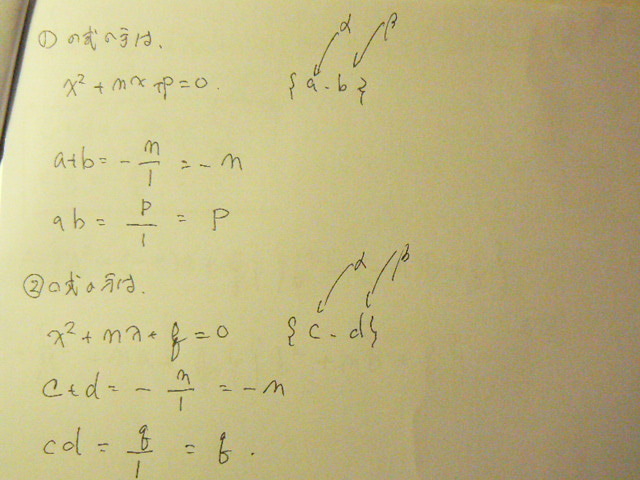 ①の式の方は、
α β
x²+mx+p=0. {a.b}
a+b=-m/1=-m
ab=p/1=p
②の式の方は.
α β
x²+nx+q=0 {c.d}
c+d=-n/1=-n
cd=q/1=q.